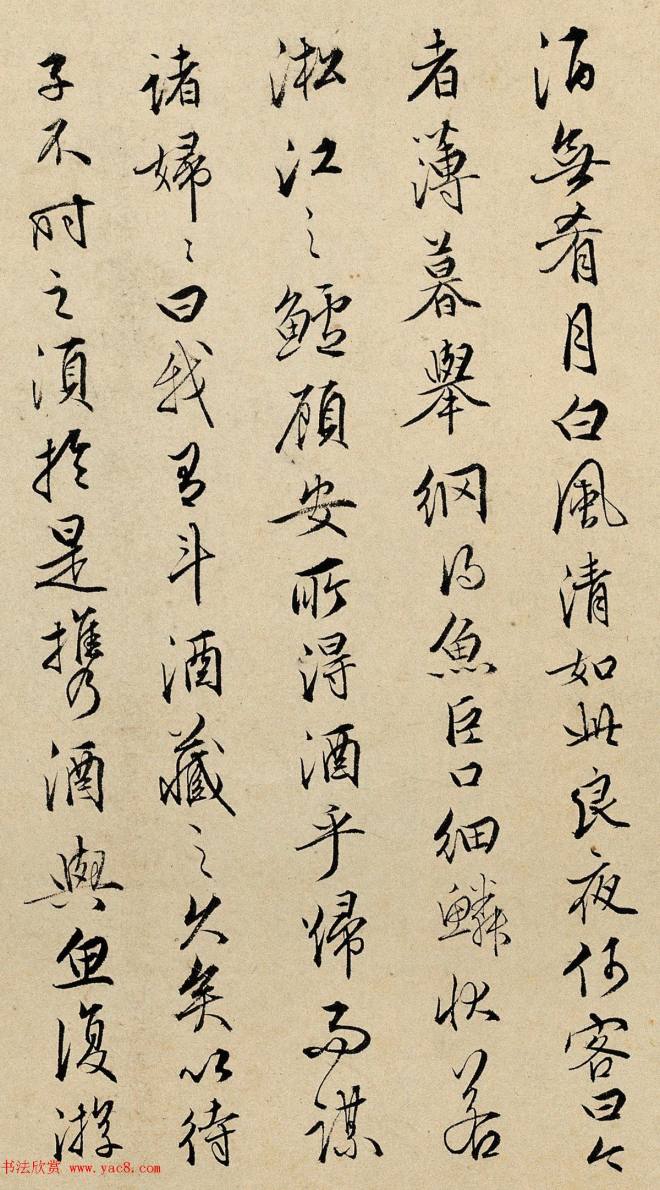 酒無肴月白風清如此良夜何客曰今
者薄暮舉網得魚巨口細鱗狀若
淞江之鱸顧安所得酒乎歸而謀
諸婦〻曰我有斗酒藏之久矣以待
子不時之須於是携酒與魚復游
书法欣赏 www.yac8.com